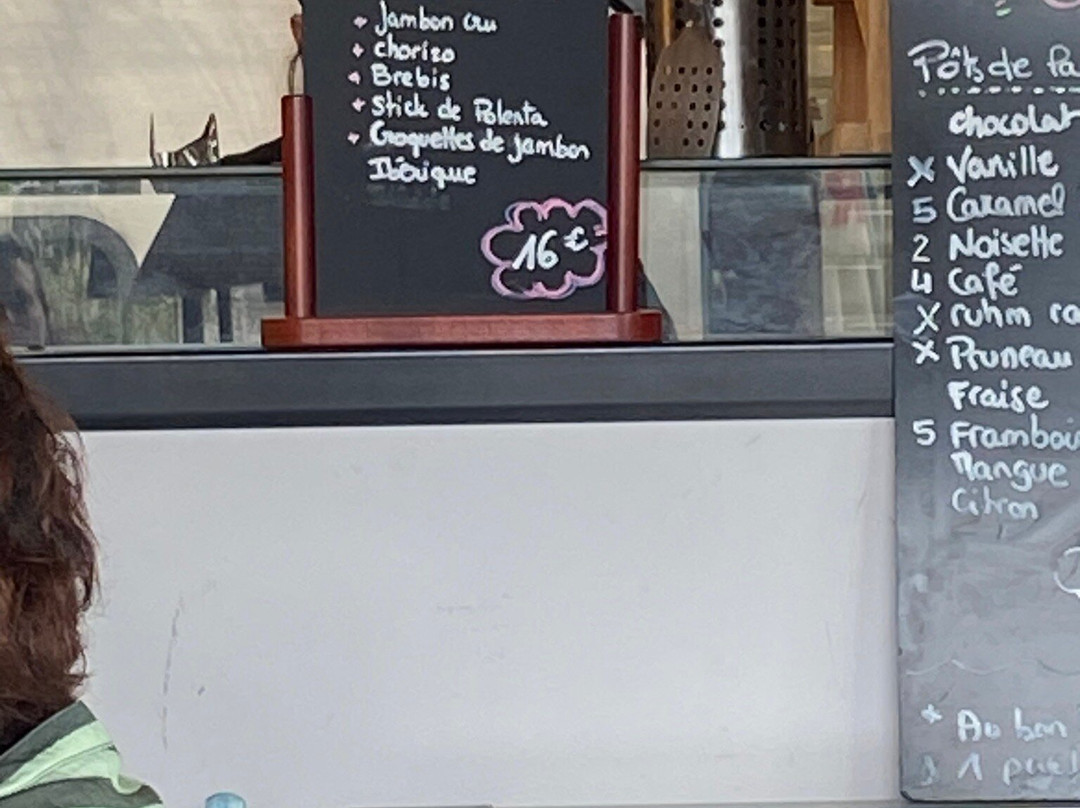 Jambon cru
chorizo
Brebis
Stick de Polenta
Croquettes de jambon
Ibérique
16 €
Pôts de
chocolat
X Vanille
5 Caramel
2 Noisette
4 Café
X ruhm
X Pruneau
Fraise
5
Mangue
Citron
* Au bon
1